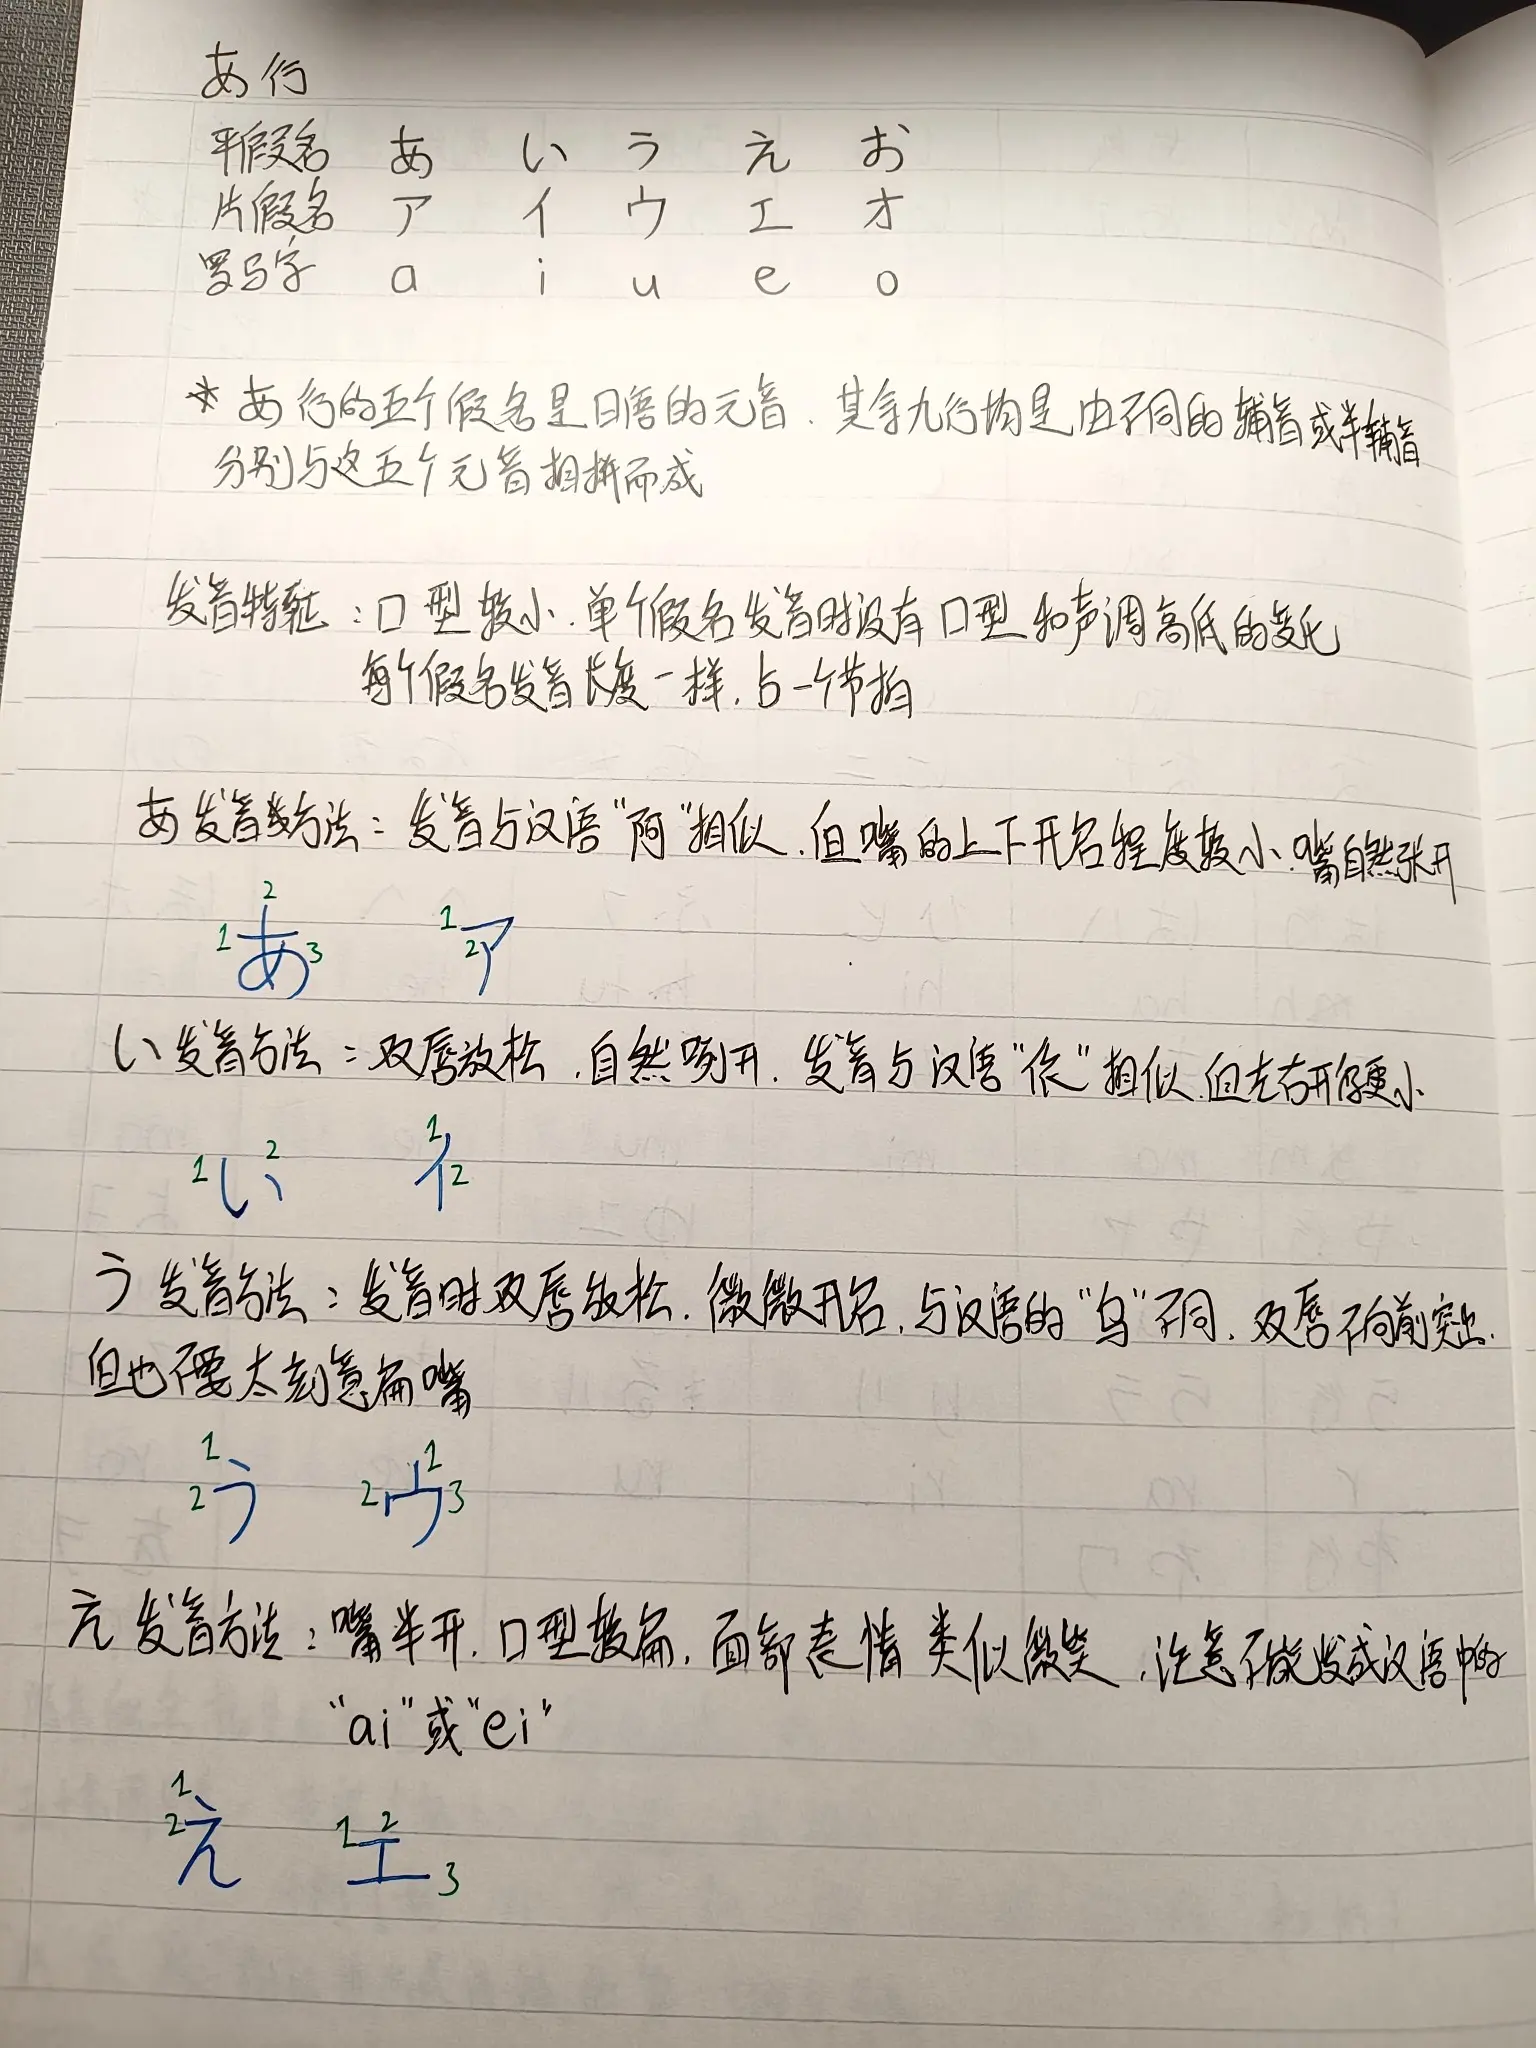 あ行
平假名 あ い う え お
片假名 ア イ ウ エ オ
罗马字 a i u e o
* あ行的五个假名是日语的元音.其余九行均是由不同的辅音或半辅音
分别与这五个元音相拼而成
发音特征:口型较小.单个假名发音时没有口型和声调高低的变化
每个假名发音长度一样.占一个节拍
あ发音方法:发音与汉语"阿"相似.但嘴的上下开合程度较小.嘴自然张开
2
1 あ 3 1 2 ア
い发音方法:双唇放松.自然咧开.发音与汉语"依"相似.但左右开得更小
1 い 2 1 イ 2
う发音方法:发音时双唇放松.微微开合.与汉语的"乌"不同.双唇不向前突出.
但也不要太刻意扁嘴
1 1
2 う 2 ウ 3
え发音方法:嘴半开.口型较扁.面部表情类似微笑.注意不能发成汉语中的
"ai"或"ei"
1
2 え 1 2 エ 3